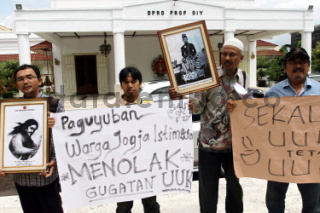 DPRD PROP DIY
PAGUYUBAN
WARGA JOGJA ISTIMEWA
MENOLAK
GUGATAN UUK
SEKALI
UUK
TETAP
UUK